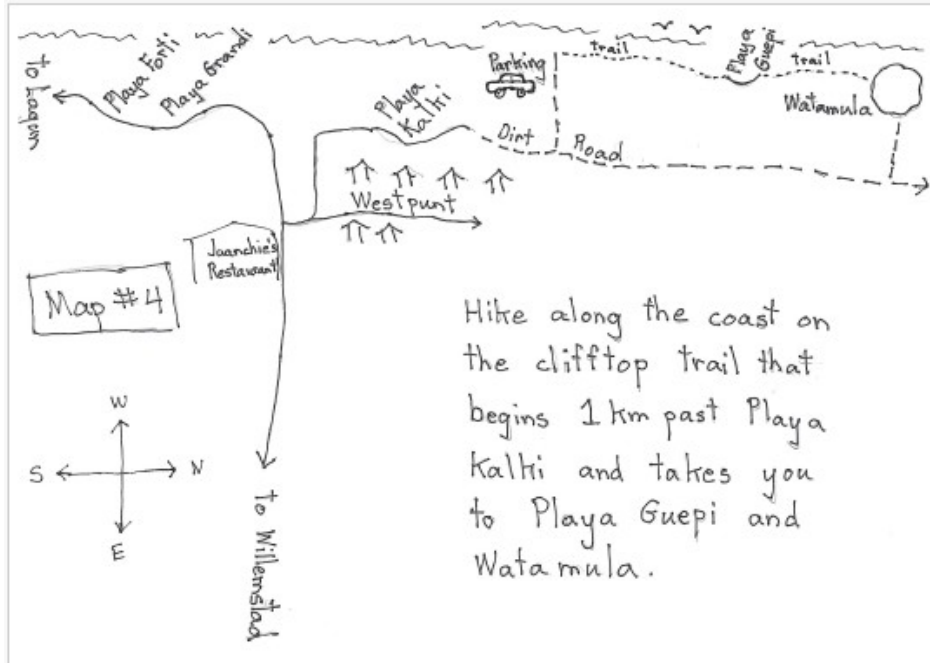 to Lagun
Playa Forti
Playa Grandi
Playa
Kalki
Parking
trail
Playa
Guepi
trail
Watamula
Dirt Road
Westpunt
Jaanchie's
Restaurant
Map #4
W
S N
E
to Willemstad
Hike along the coast on
the clifftop trail that
begins 1 km past Playa
Kalki and takes you
to Playa Guepi and
Watamula.